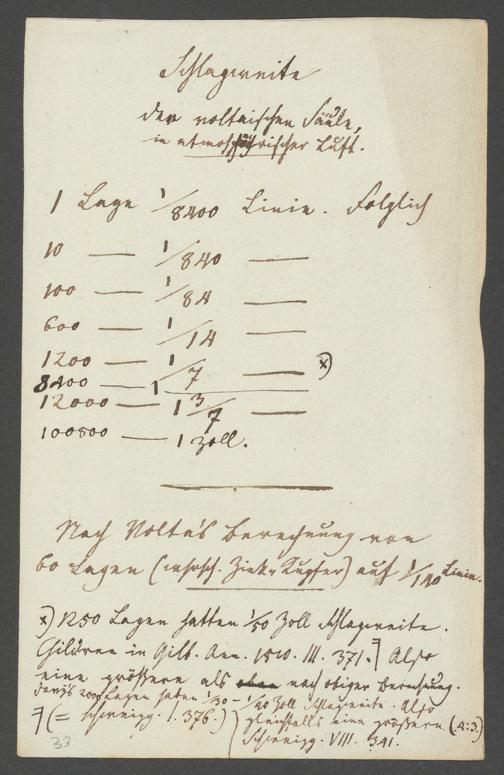 Schlagweite
der voltaischen Säule,
in atmosphärischer Luft.
1 Lage 1/8400 Linie. Folglich
10 — 1/840 —
100 — 1/84 —
600 — 1/14 —
1200 — 1/7 — x)
8400 — 1
12000 — 1 3/7 —
100800 — 1 Zoll.
Nach Volta's Berechnung von
60 Lagen (wahrsch. Zink u Kupfer) auf 1/140 Linie.
x) 1250 Lagen hatten 1/50 Zoll Schlagweite.
Children in Gilb. Ann. 1810. III. 371. Also
eine größere als nach obiger Berechnung.
Davy's 2000 Lagen haben 1/30 – 1/40 Zoll Schlagweite. Also
(= Schweigg. I. 376.) gleichfalls eine größere (4:3.)
Schweigg. VIII. 341.
33